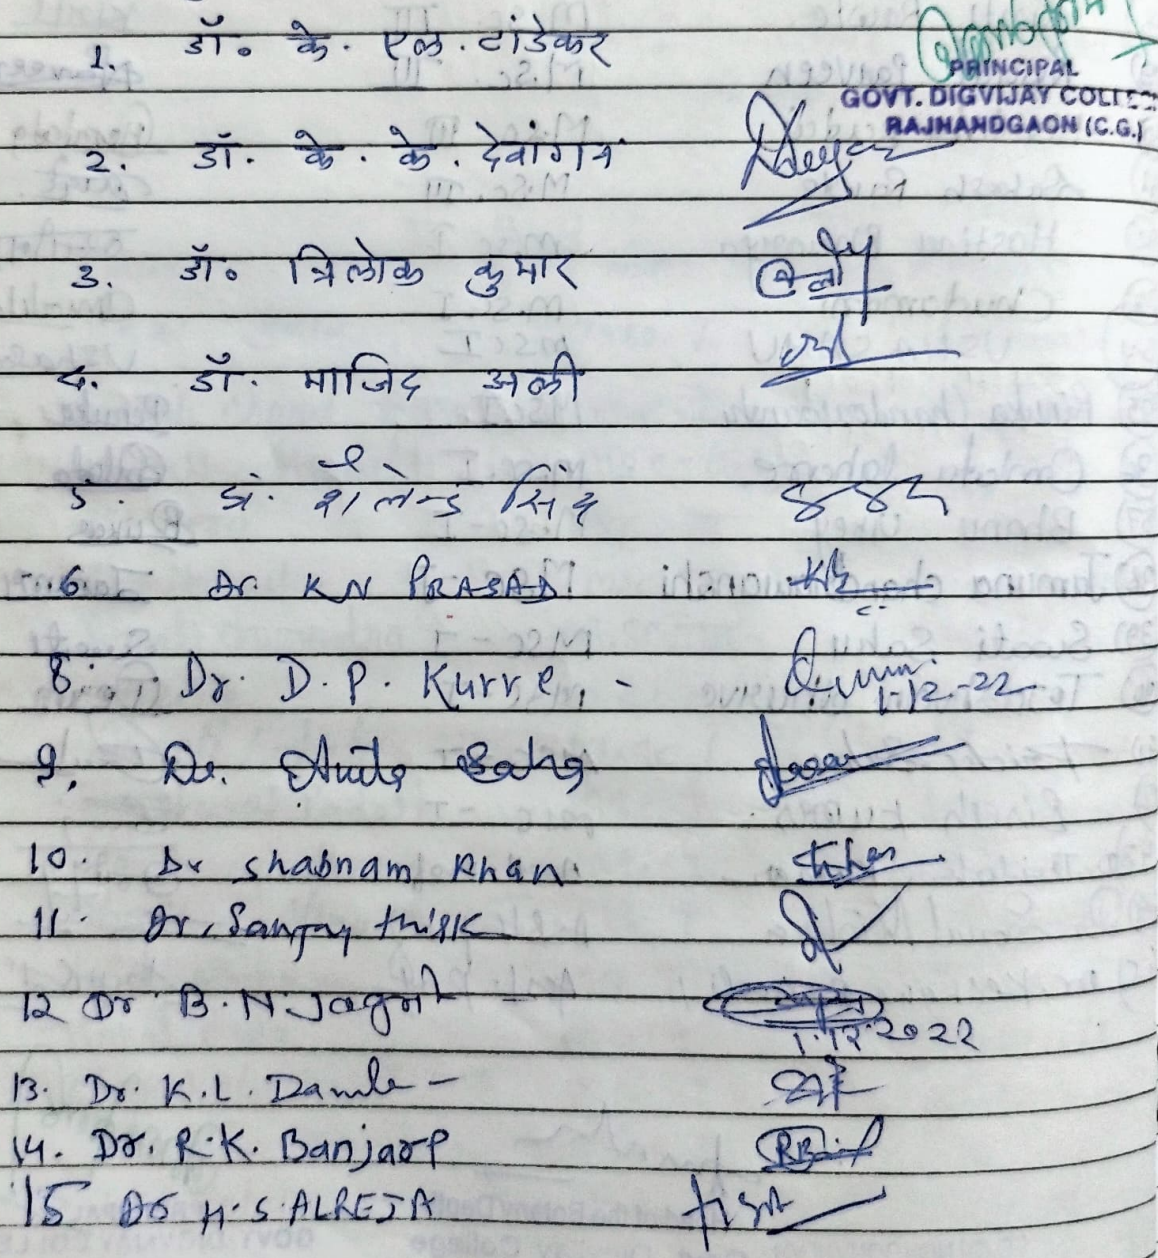 1. डॉ. के. एल. टांडेकर
PRINCIPAL
GOVT. DIGVIJAY COLLEG
RAJNANDGAON (C.G.)
2. डॉ. के. के. देवांगन
3. डॉ. त्रिलोक कुमार
4. डॉ. माजिद अली
5. डॉ. शैलेन्द्र सिंह
6 Dr. KN PRASAD
8. Dr. D. P. Kurre, -
1-12-22
9. Dr. Anita Saha
10. Dr Shabnam Khan
11. Dr. Sanjay thisk
12 Dr B. N. Jagrit -
1.12.2022
13. Dr. K. L. Damle -
14. Dr. R. K. Banjare
15 Dr H. S. ALREJA